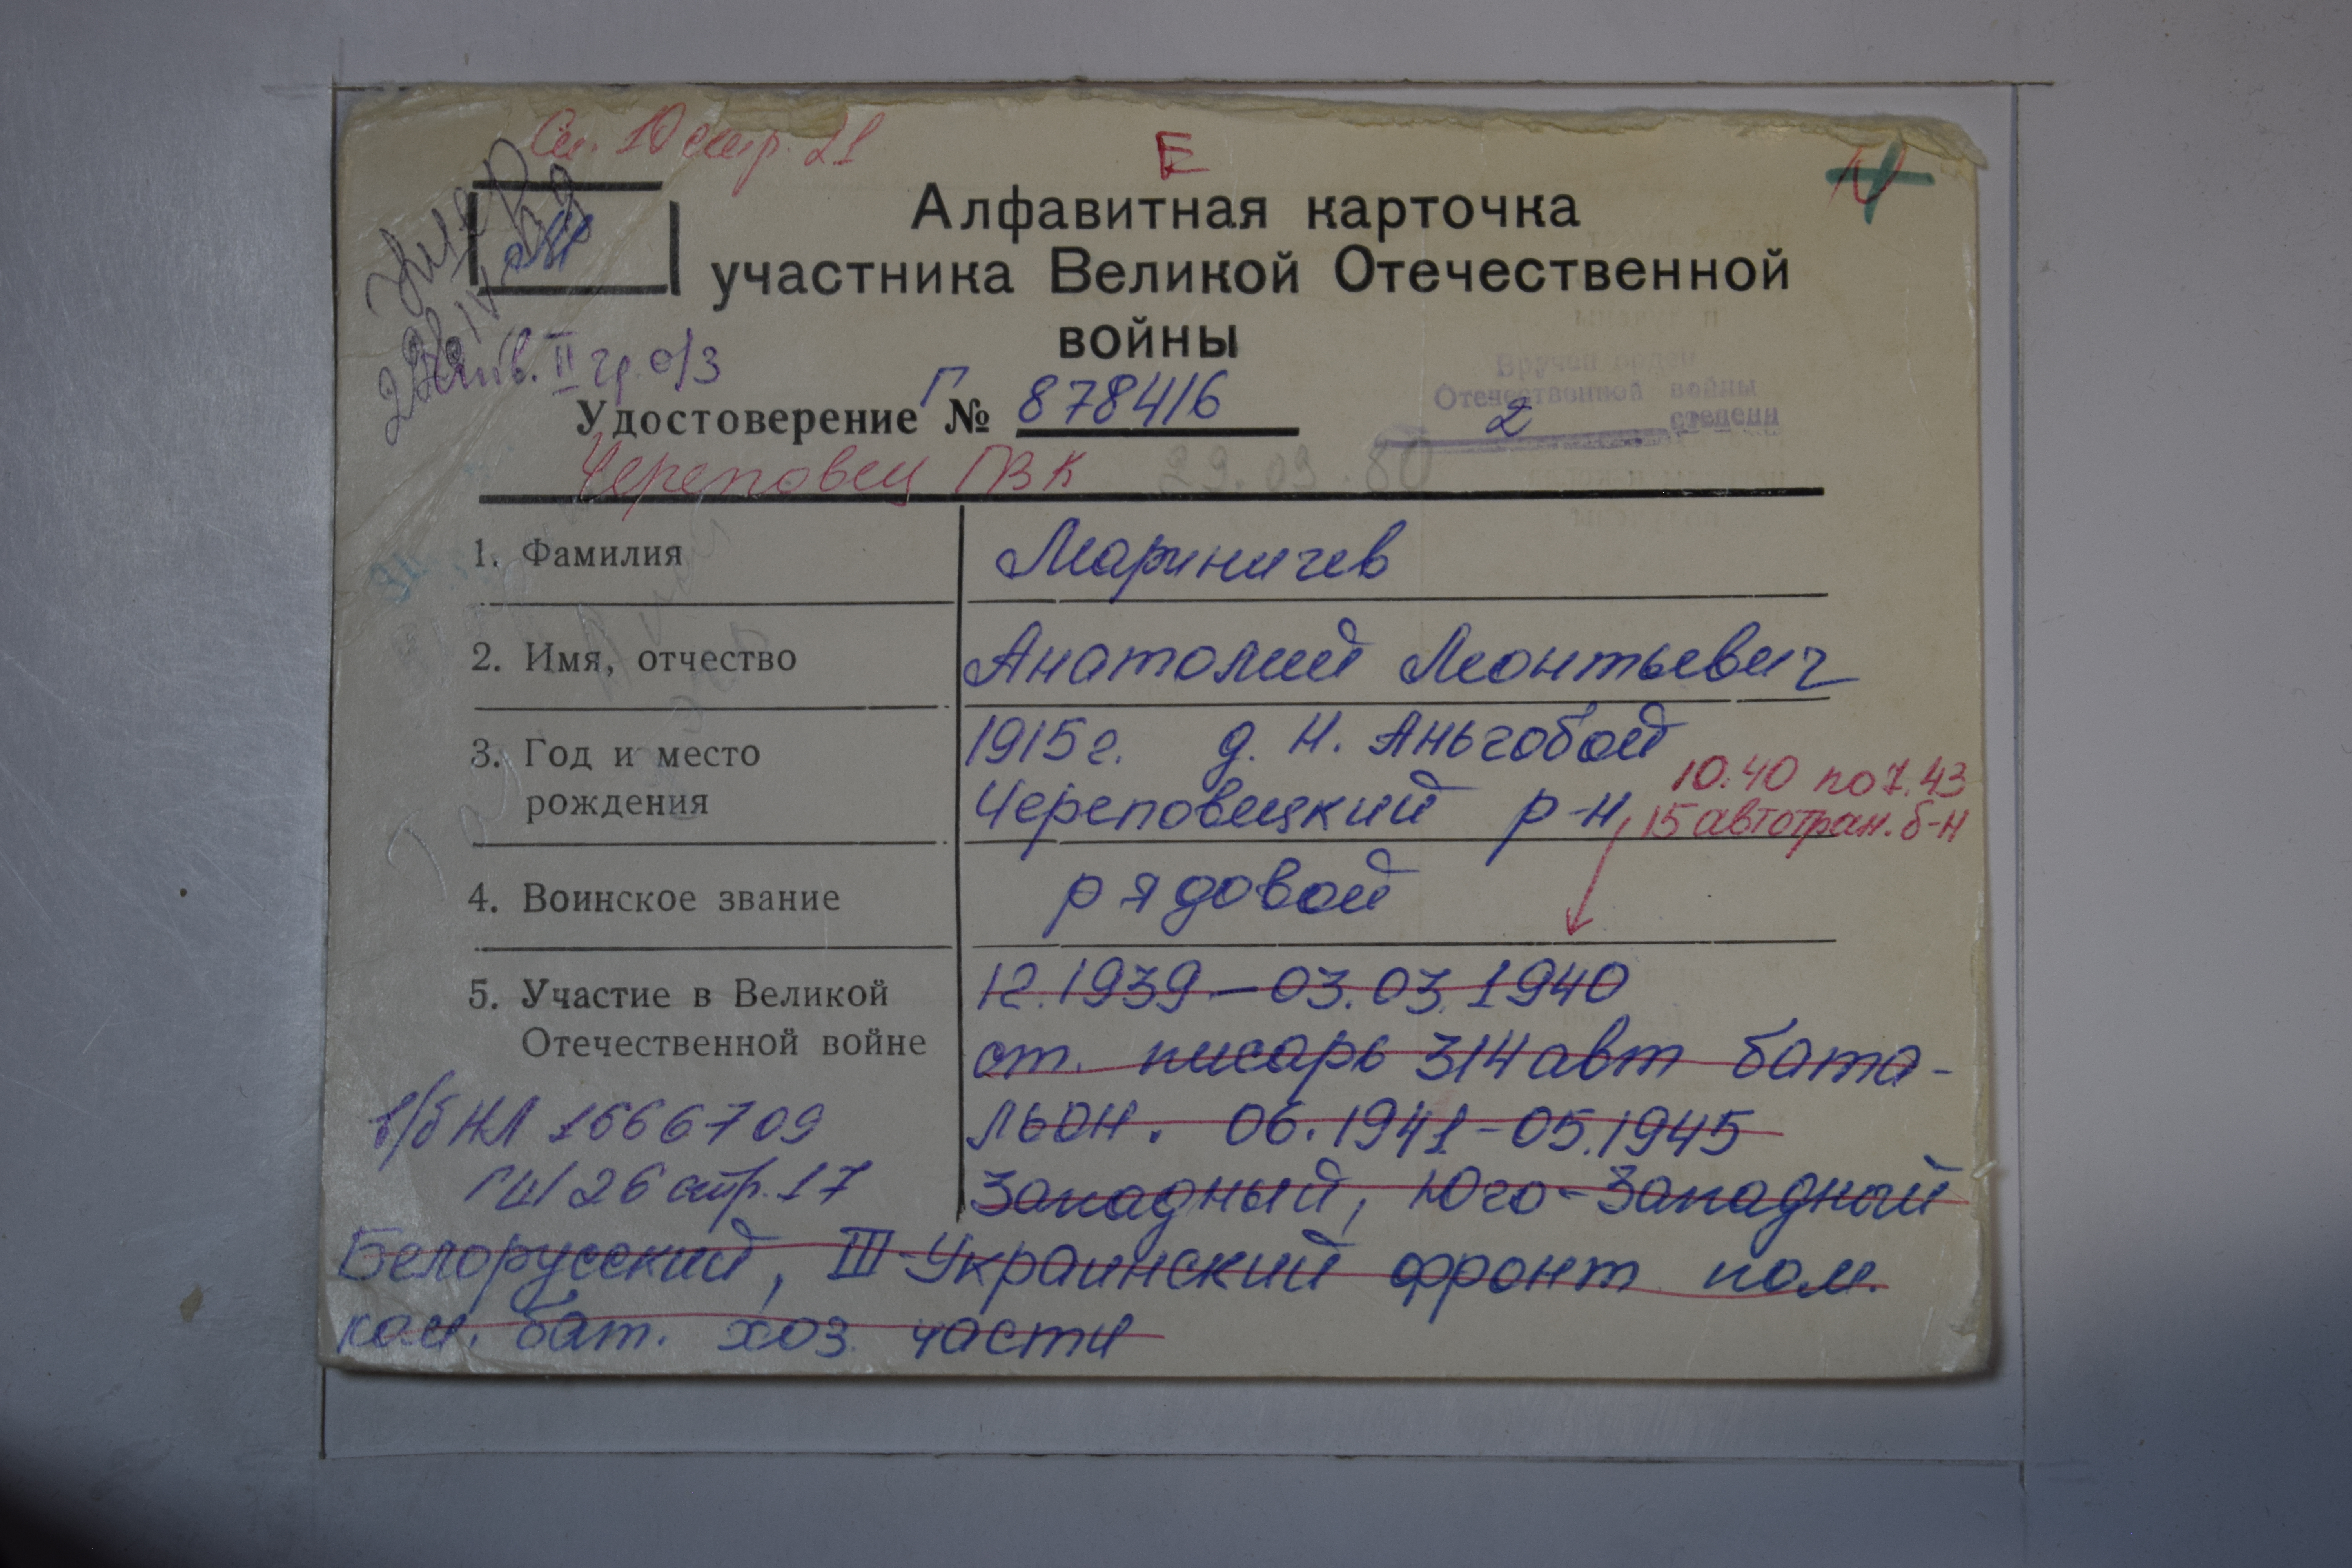 Сп. 10 стр. 21
Е
Алфавитная карточка
участника Великой Отечественной
войны
Умер
инв. II гр. о/з
Вручен орден
Отечественной войны
2 степени
Удостоверение Г № 878416
Череповец ГВК 29.03.80
1. Фамилия Мариничев
2. Имя, отчество Анатолий Леонтьевич
3. Год и место 1915 г. д. Н. Аньгобой
рождения Череповецкий р-н
10.40 по 7.43
15 автотран. б-н
4. Воинское звание рядовой
5. Участие в Великой 12.1939 – 03.03.1940
Отечественной войне ст. писарь 314 авт бата-
льон. 06.1941-05.1945
в/б НЛ 1666709
ГШ 26 стр. 17
Западный, Юго-Западный
Белорусский, III Украинский фронт пом.
ком. бат. хоз. части